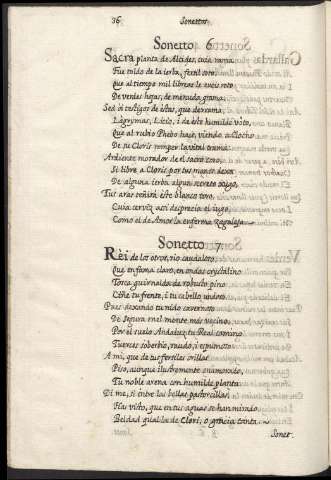 36 Sonettos.
Sonetto 6
Sacra planta de Alcides, cuia rama
Fue toldo de la ierba, fertil soto
Que al tiempo mil libreas le aueis roto
De verdes hojas, de menuda grama:
Sed oi testigos de estas, que derrama,
Lagrymas, Licio, i de este humilde voto,
Que al rubio Phebo haze, viendo a Clocho
De su Cloris romper la vital trama.
Ardiente morador de el sacro coro,
Si libre a Cloris por tus manos dexas
De alguna ierba algun secreto
Tus aras teñirà este blanco toro,
Cuia cerviz assi desprecia el iugo,
Como el de Amor la enferma zagaleja
Sonetto 7
Rèi de los otros, rio caudaloso,
Que en fama claro, en ondas crystalino
Tosca guirnalda de robusto pino
Ciñe tu frente, i tu cabello undoso.
Pues dexando tu nido cavernoso
De Segura en el monte mas vezino
Por el suelo Andaluz tu Real camino
Tuerces soberbio, raudo, i espumoso
A mi, que de tus fertiles orillas
Piso, aunque ilustremente enamorado,
Tu noble arena con humilde planta;
Di me, si entre las bellas pastorcillas,
Has visto, que en tus aguas se han mirado,
Beldad qual la de Clori, o gracia tanta.
Sonet.